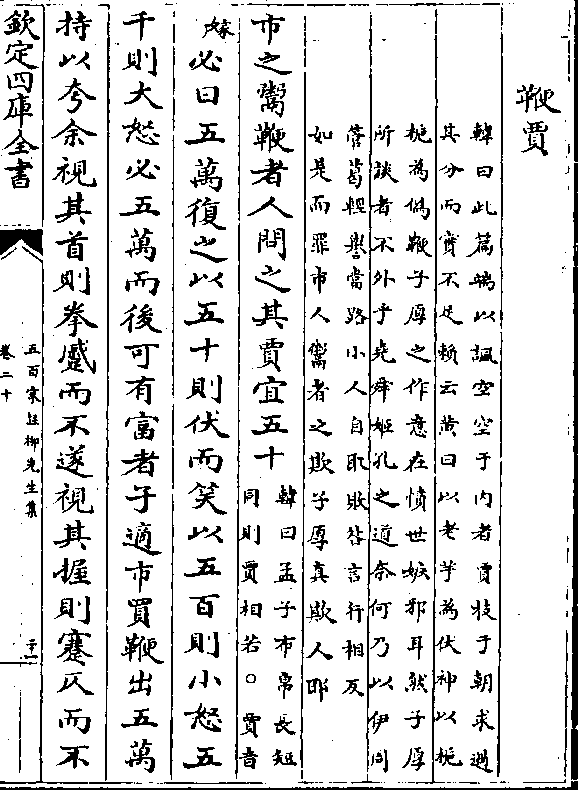 鞭賈
韓曰此篇端以諷空空于内者賈技于朝求過
其分而實不足賴云黄曰以老芋為伏神以梔
梔為僞鞭子厚之作意在憤世嫉邪耳然子厚
所談者不外于堯舜姬孔之道奈何乃以伊周
管葛輕譽當路小人自取敗咎言行相反
如是而罪市人鬻者之欺子厚真欺人耶
市之鬻鞭者人問之其賈宜五十
韓曰孟子布帛長短
同則賈相若○賈音
嫁必曰五萬復之以五十則伏而笑以五百則小怒五
千則大怒必五萬而後可有富者子適市買鞭出五萬
持以夸余視其首則拳蹙而不遂視其握則蹇仄而不
欽定四庫全書
五百家註柳先生集
卷二十